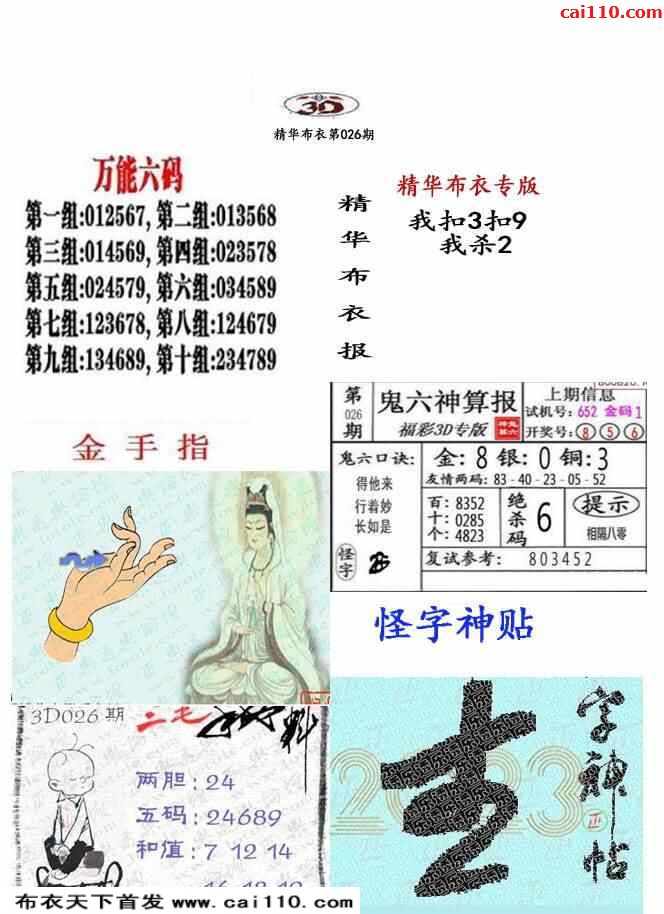 cai110.com
3D
精华布衣第026期
万能六码
第一组:012567,第二组:013568
第三组:014569,第四组:023578
第五组:024579,第六组:034589
第七组:123678,第八组:124679
第九组:134689,第十组:234789
精华布衣报
精华布衣专版
我扣3扣9
我杀2
金手指
第026期
鬼六神算报
福彩3D专版
上期信息
试机号:652 金码1
开奖号:8 5 6
鬼六口诀:
得他来
行着妙
长如是
怪字
金:8银:0铜:3
友情两码:83-40-23-05-52
百:8352
十:0285
个:4823
绝杀码
6
提示
相隔八零
复试参考: 803452
怪字神贴
3D026期
二毛
两胆:24
五码:24689
和值:7 12 14
2023
字神帖
布衣天下首发 www.cai110.com